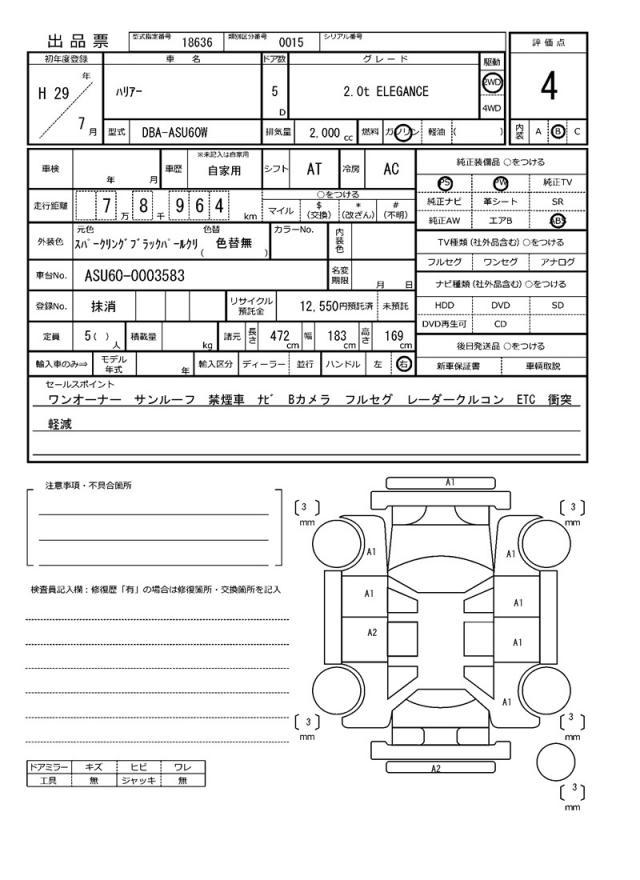 出品票 型式指定番号 18636 類別区分番号 0015 シリアル番号
評価点
4
初年度登録 車名 ドア数 グレード 駆動
H 29 年 7 月
ﾊﾘｱｰ 5 D 2.0t ELEGANCE 2WD 4WD
型式 DBA-ASU60W 排気量 2,000 cc 燃料 ガソリン 軽油 ( )
内装 A B C
車検 年 月 車歴 ※未記入は自家用 自家用 シフト AT 冷房 AC
走行距離 7 万 8 千 9 6 4 km
○をつける
マイル $ (交換) * (改ざん) # (不明)
外装色 元色 ｽﾊﾟｰｸﾘﾝｸﾞﾌﾞﾗｯｸﾊﾟｰﾙｸﾘ 色替 ( 色替無 ) カラーNo. 内装色
車台No. ASU60-0003583 名変期限 月 日
登録No. 抹消 リサイクル預託金 12,550円預託済 未預託
定員 5 ( ) 人 積載量 kg 諸元 長さ 472 cm 幅 183 cm 高さ 169 cm
輸入車のみ⇒ モデル年式 年 輸入区分 ディーラー 並行 ハンドル 左 右
純正装備品 ○をつける
PS PW 純正TV
純正ナビ 革シート SR
純正AW エアB ABS
TV種類 (社外品含む) ○をつける
フルセグ ワンセグ アナログ
ナビ種類 (社外品含む) ○をつける
HDD DVD SD
DVD再生可 CD
後日発送品 ○をつける
新車保証書 車輌取説
セールスポイント
ワンオーナー サンルーフ 禁煙車 ﾅﾋﾞ Bカメラ フルセグ レーダークルコン ETC 衝突
軽減
注意事項・不具合箇所
検査員記入欄：修復歴「有」の場合は修復箇所・交換箇所を記入
ドアミラー キズ ヒビ ワレ
工具 無 ジャッキ 無
A1
3 mm
3 mm
A1
A1
A1
A1
A2
A1
A1
3 mm
3 mm
A2
3 mm